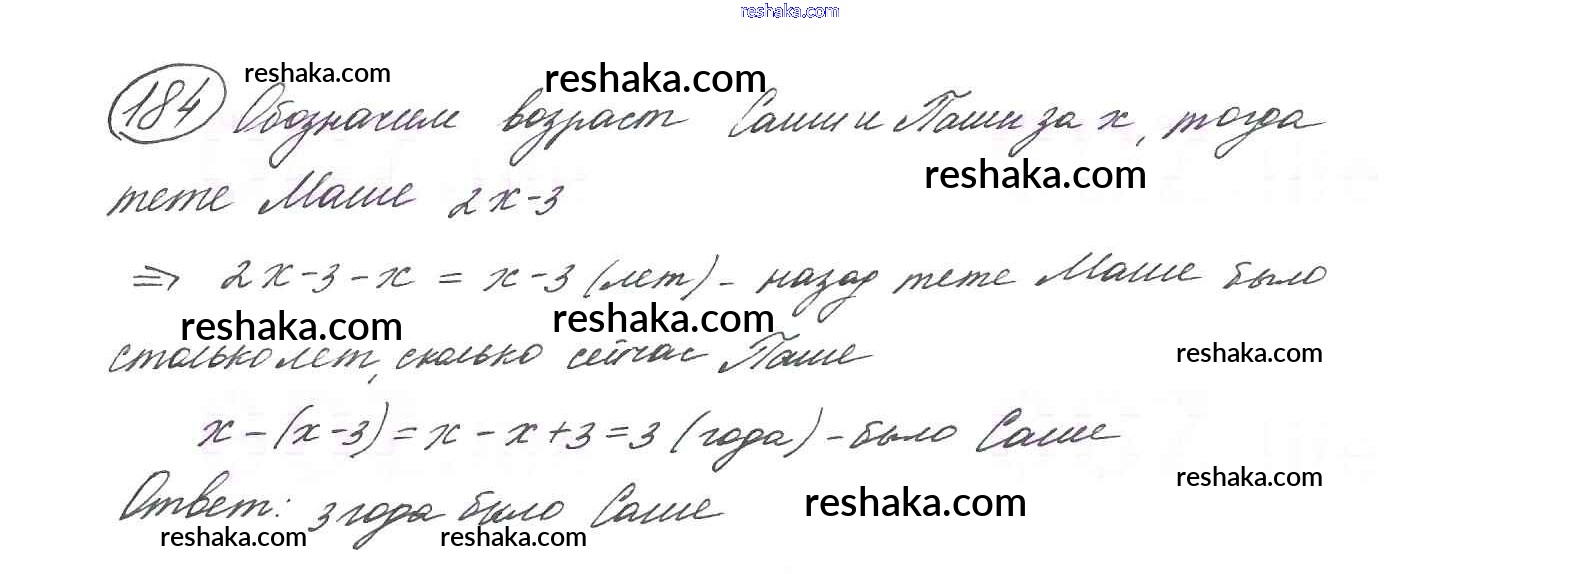 reshaka.com
reshaka.com reshaka.com
184 Обозначим возраст Саши и Паши за x, тогда
reshaka.com
тете Маше 2x-3
⇒ 2x-3-x = x-3 (лет) - назад тете Маше было
reshaka.com reshaka.com
столько лет, сколько сейчас Паше
reshaka.com
x-(x-3)=x-x+3=3 (года) - было Саше
reshaka.com
Ответ: 3 года было Саше
reshaka.com
reshaka.com reshaka.com